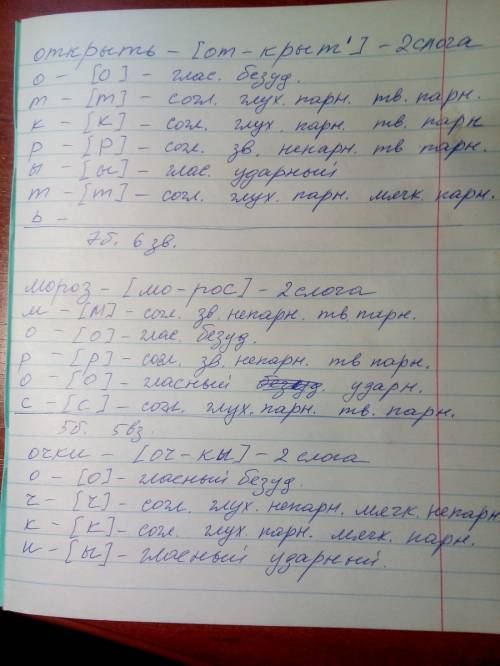 открыть - [от - крыт'] - 2 слога
о - [о] - глас. безуд.
т - [т] - согл. глух. парн. тв. парн.
к - [к] - согл. глух. парн. тв. парн
р - [р] - согл. зв. непарн. тв парн.
ы [ы] - глас. ударный
т - [т] - согл. глух. парн. мягк. парн.
ь -
7б. 6 зв.
мороз - [мо - рос] - 2 слога
м - [м] - согл. зв. непарн. тв парн.
о - [о] - глас. безуд.
р - [р] - согл. зв. непарн. тв парн.
о - [о] - гласный ударн.
с - [с] - согл. глух. парн. тв. парн.
5б. 5вз.
очки - [оч - кы] - 2 слога
о - [о] - гласный безуд.
ч - [ч] - согл. глух. непарн. мягк. непарн
к - [к] - согл. глух. парн. мягк. парн.
и - [ы] - гласный ударный.